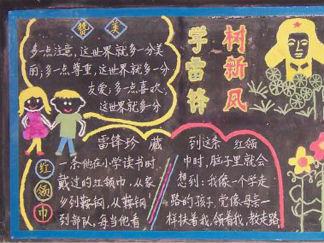 赞美
多一点注意,这世界就多一分美
丽;多一点尊重,这世界就多一分
友爱;多一点喜欢,
这世界就多一分
学雷锋
树新风
雷锋珍藏
红领巾
一条他在小学读书时,
戴过的红领巾,从家
乡到鞍钢,从鞍钢
到部队,每当他看
到这条红领
巾时,脑子里就会
想到:我像一个学走
路的孩子,党像母亲一
样扶着我,领着我,教走路